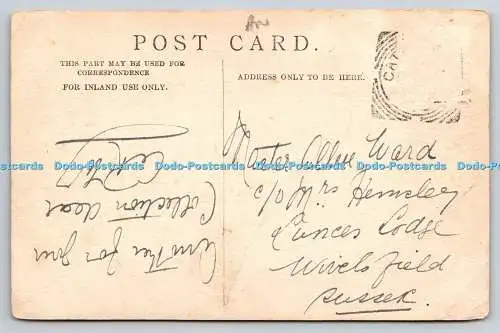 POST CARD.
THIS PART MAY BE USED FOR
CORRESPONDENCE
FOR INLAND USE ONLY.
ADDRESS ONLY TO BE HERE.
Another for your
Collection dear
Master Allen Ward
c/o Mrs Hemsley
Lunces Lodge
Wivelsfield
Sussex.
Dodo-Postcards Dodo-Postcards Dodo-Postcards Dodo-Postcards